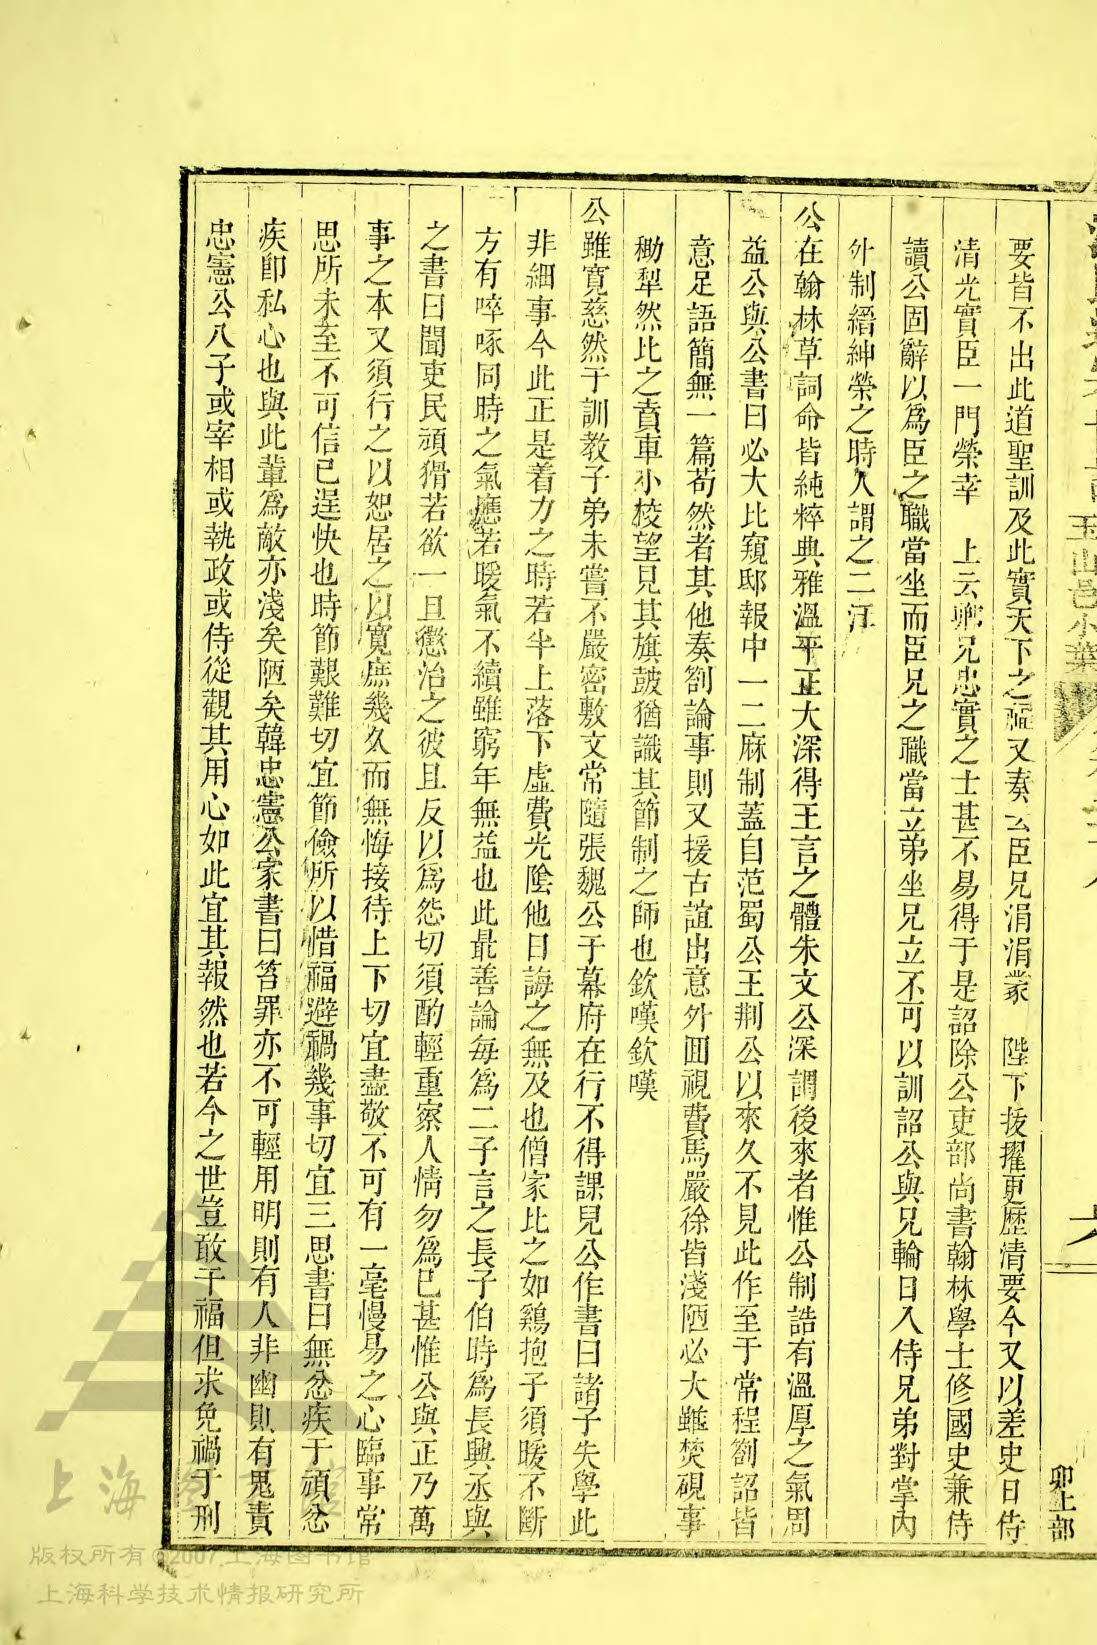 要皆不出此道聖訓及此實天下之福又奏云臣兄涓涓蒙　陛下拔擢更歷清要今又以差史日侍
清光實臣一門榮幸　上云卿兄忠實之士甚不易得于是詔除公吏部尚書翰林學士修國史兼侍
讀公固辭以爲臣之職當坐而臣兄之職當立弟坐兄立不可以訓詔公與兄輪日入侍兄弟對掌內
外制縉紳榮之時人謂之二汪
公在翰林草詞命皆純粹典雅溫平正大深得王言之體朱文公深謂後來者惟公制誥有溫厚之氣周
益公與公書曰必大比窺邸報中一二麻制蓋自范蜀公王荆公以來久不見此作至于常程劄詔皆
意足語簡無一篇苟然者其他奏劄論事則又援古誼出意外囬視費馬嚴徐皆淺陋必大雖焚硯事
耡犁然比之賁車小棱望見其旗鼓猶識其節制之師也欽嘆欽嘆
公雖寬慈然于訓教子弟未嘗不嚴密敷文常隨張魏公于幕府在行不得課兒公作書曰諸子失學此
非細事今此正是着力之時若半上落下虛費光陰他日誨之無及也僧家比之如鷄抱子須暖不斷
方有啐啄同時之氣應若暖氣不續雖窮年無益也此最善論每爲二子言之長子伯時爲長興丞與
之書曰聞吏民頑猾若欲一旦懲治之彼且反以爲怨切須酌輕重察人情勿爲已甚惟公與正乃萬
事之本又須行之以恕居之以寬庶幾久而無悔接待上下切宜盡敬不可有一毫慢易之心臨事常
思所未至不可信已逞快也時節艱難切宜節儉所以惜福避禍幾事切宜三思書曰無忿疾于頑忿
疾卽私心也與此輩爲敵亦淺矣陋矣韓忠憲公家書曰笞罪亦不可輕用明則有人非幽則有鬼責
忠憲公八子或宰相或執政或侍從觀其用心如此宜其報然也若今之世豈敢干福但求免禍于刑
玉山邑小葉
卯上部
上海
版权所有©2007上海图书馆
上海科学技术情报研究所